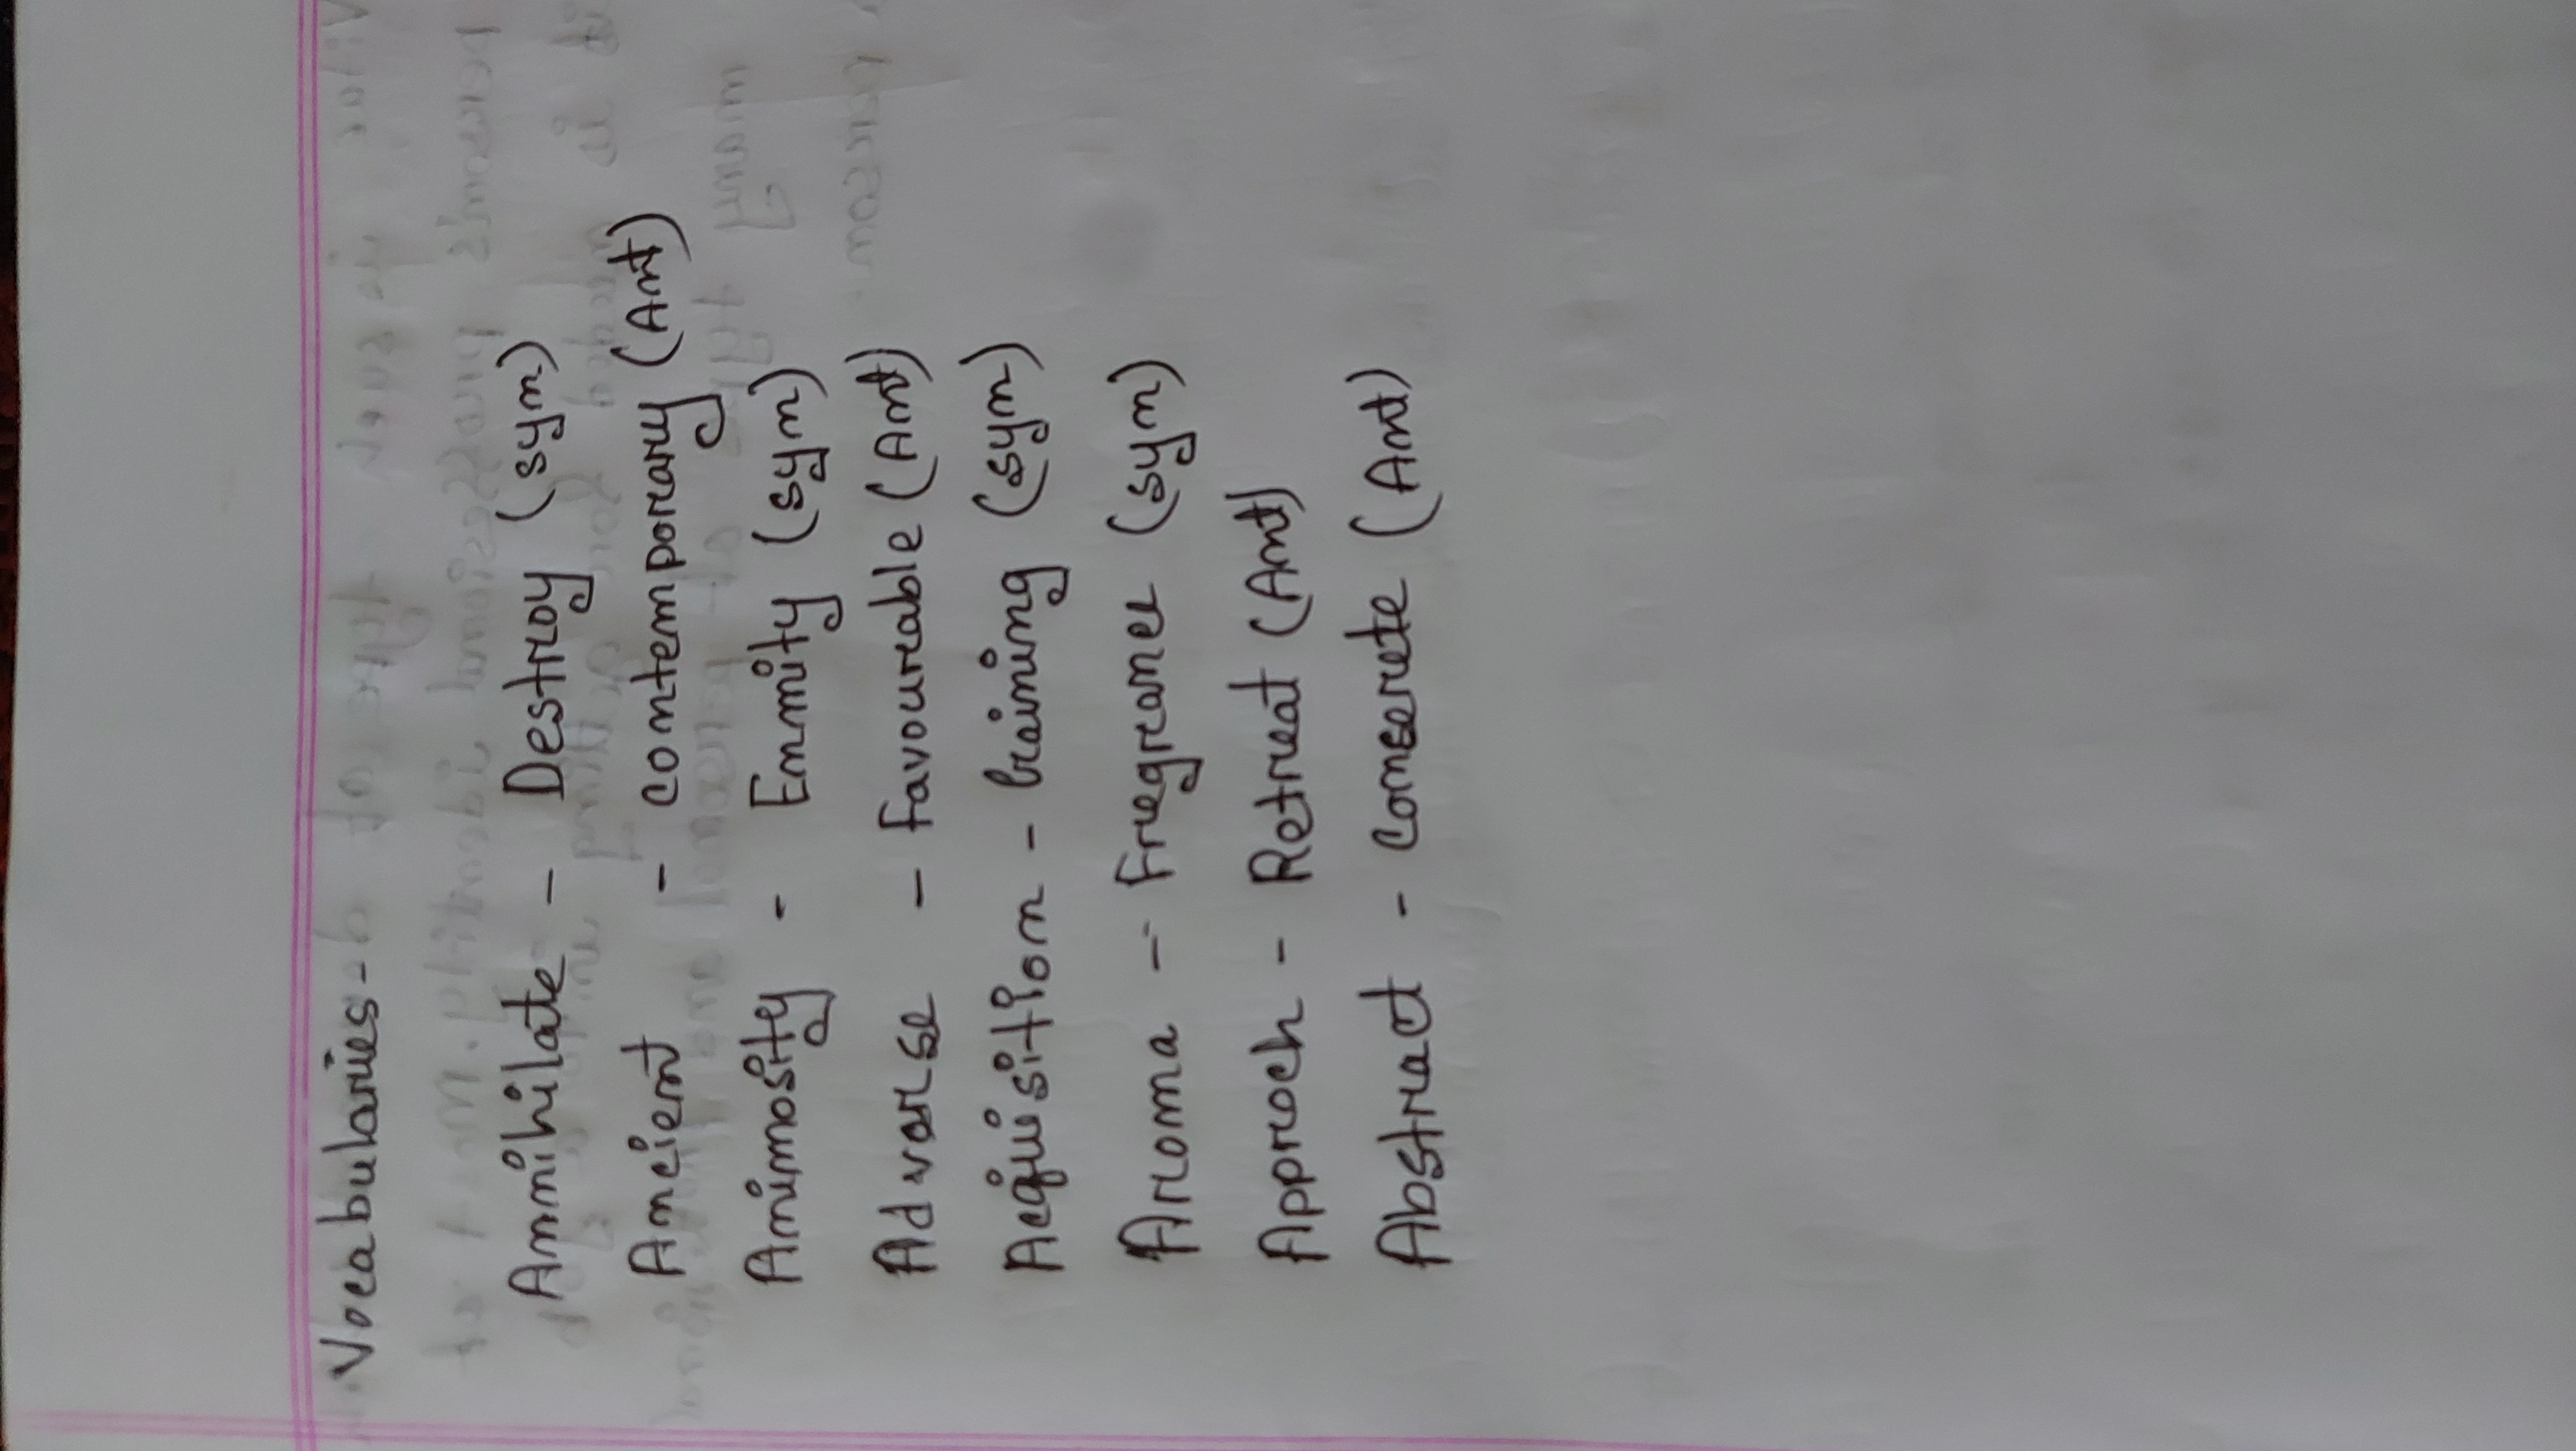 Vocabularies-
Annihilate - Destroy (syn)
Ancient - contemporary (Ant)
Animosity - Enmity (syn)
Advarse - favourable (Ant)
Acquisition - Graining (syn)
Aroma - fregrance (syn)
Approch - Retreat (Ant)
Abstract - Conserete (Ant)